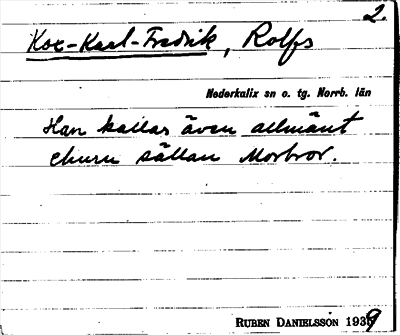 2.
Kox-Karl-Fredrik, Rolfs
Nederkalix sn o. tg. Norrb. län
Han kallas även allmänt
sällan Morbror.
RUBEN DANIELSSON 1939